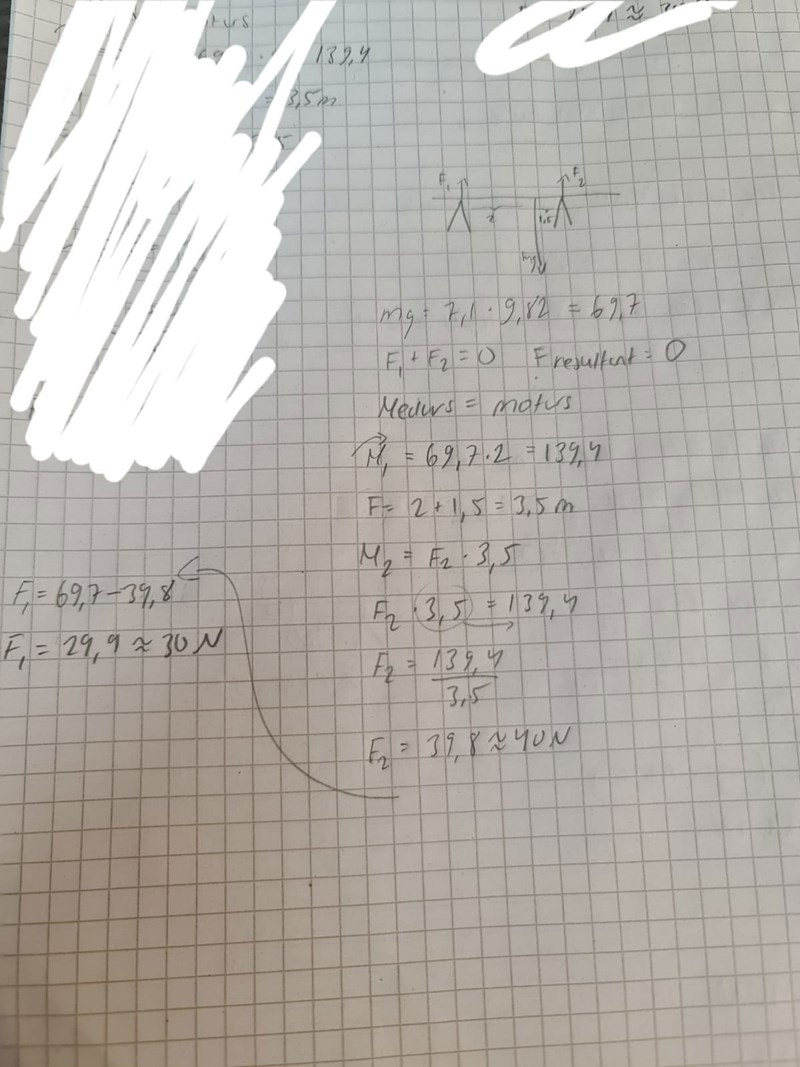 139,4
3,5m
F₁ F₂
2 1,5
mg
mg = 7,1 · 9,82 = 69,7
F₁ + F₂ = 0 Fresultent = 0
Medurs = moturs
M₁ = 69,7 · 2 = 139,4
F = 2 + 1,5 = 3,5 m
M₂ = F₂ · 3,5
F₂ · 3,5 = 139,4
F₂ = 139,4
3,5
F₂ = 39,8 ≈ 40N
F₁ = 69,7 - 39,8
F₁ = 29,9 ≈ 30 N